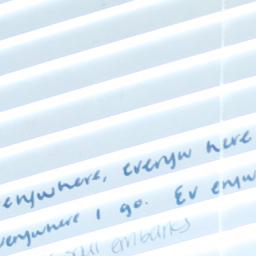 enywhere, everyw here
verywhere I go. Ev eryw
embarks